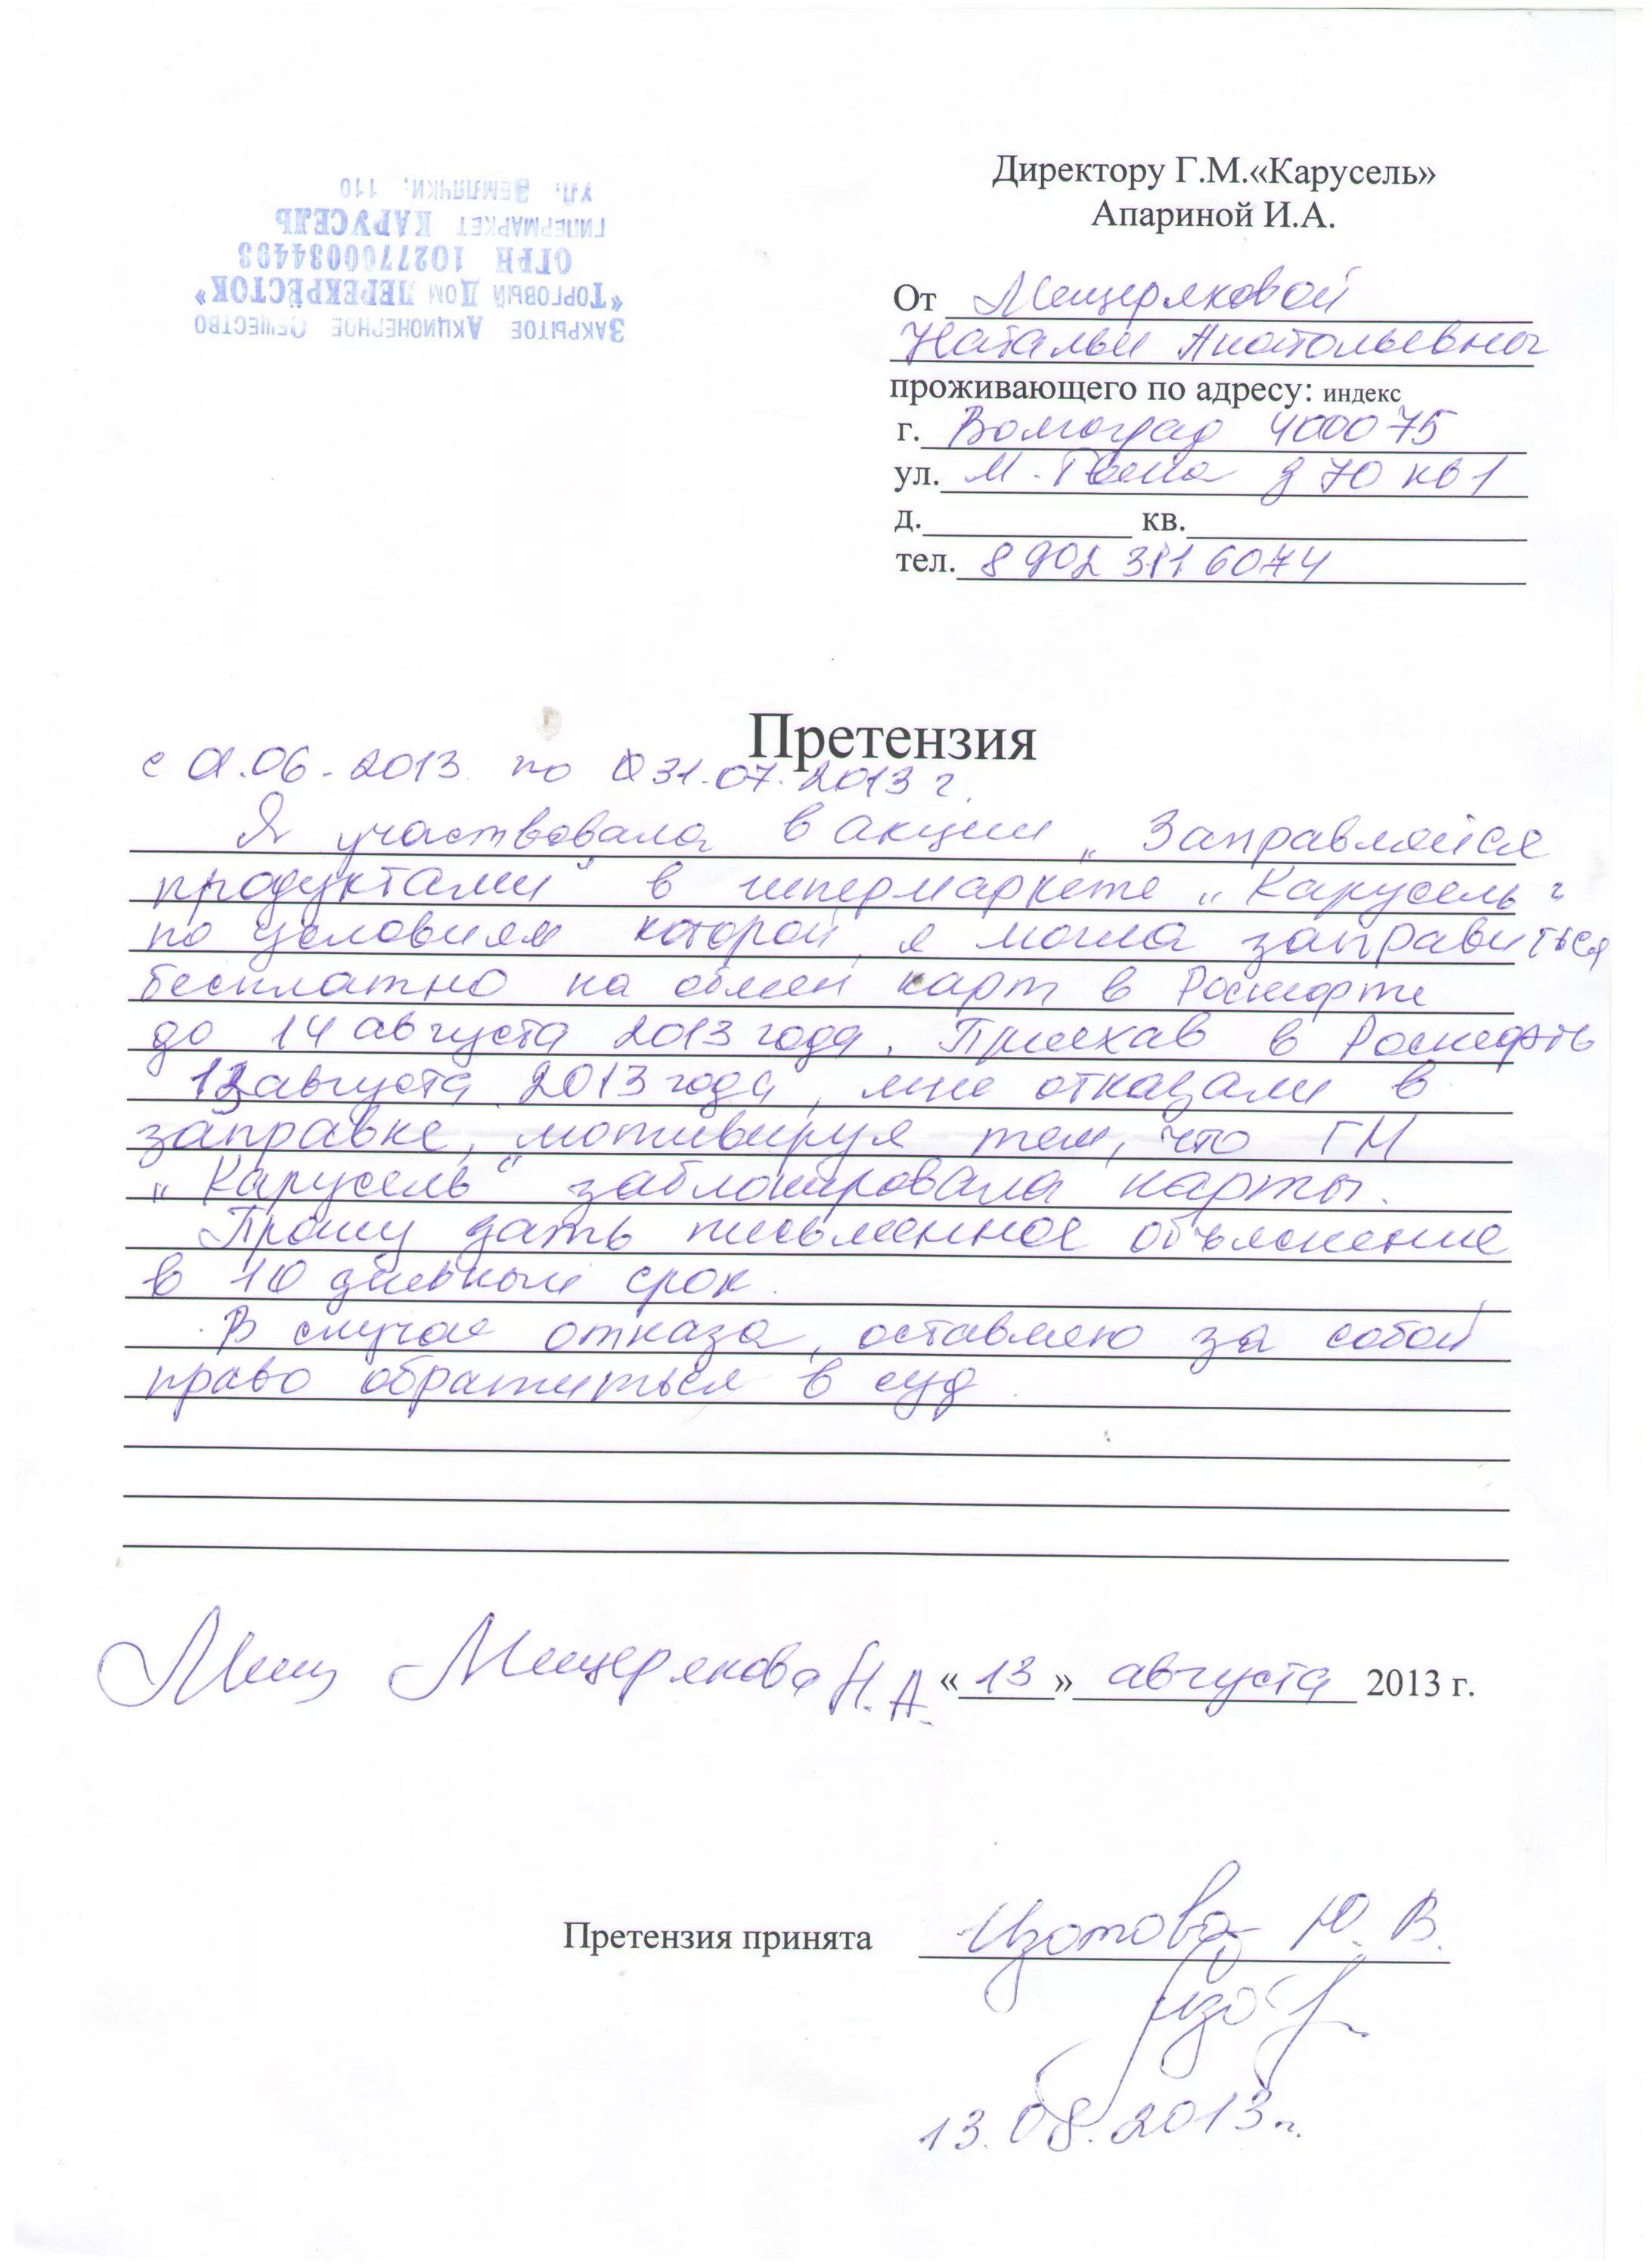 Закрытое Акционерное Общество
«Торговый Дом ПЕРЕКРЁСТОК»
ОГРН 1027700034493
ГИПЕРМАРКЕТ КАРУСЕЛЬ
ул. Землячки, 110
Директору Г.М.«Карусель»
Апариной И.А.
От Мещеряковой
Натальи Анатольевны
проживающего по адресу: индекс
г. Волгоград 400075
ул. д 70 кв 1
д. кв.
тел. 8 902 311 6074
Претензия
с 01.06.2013 по 31.07.2013 г.
Я участвовала в акции „Заправляйся
продуктами" в гипермаркете „Карусель"
по условиям которой, я могла заправиться
бесплатно на обмен карт в
до 14 августа 2013 года. Приехав в Роснефть
августа 2013 года, мне отказали в
заправке, мотивируя тем, что ГМ
„Карусель" заблокировала карты.
Прошу дать письменное объяснение
в 10 дневный срок.
В случае отказа, оставляю за собой
право обратиться в суд.
Мещерякова Н.А. «13» августа 2013 г.
Претензия принята Изотова Ю.В.
13.08.2013г.